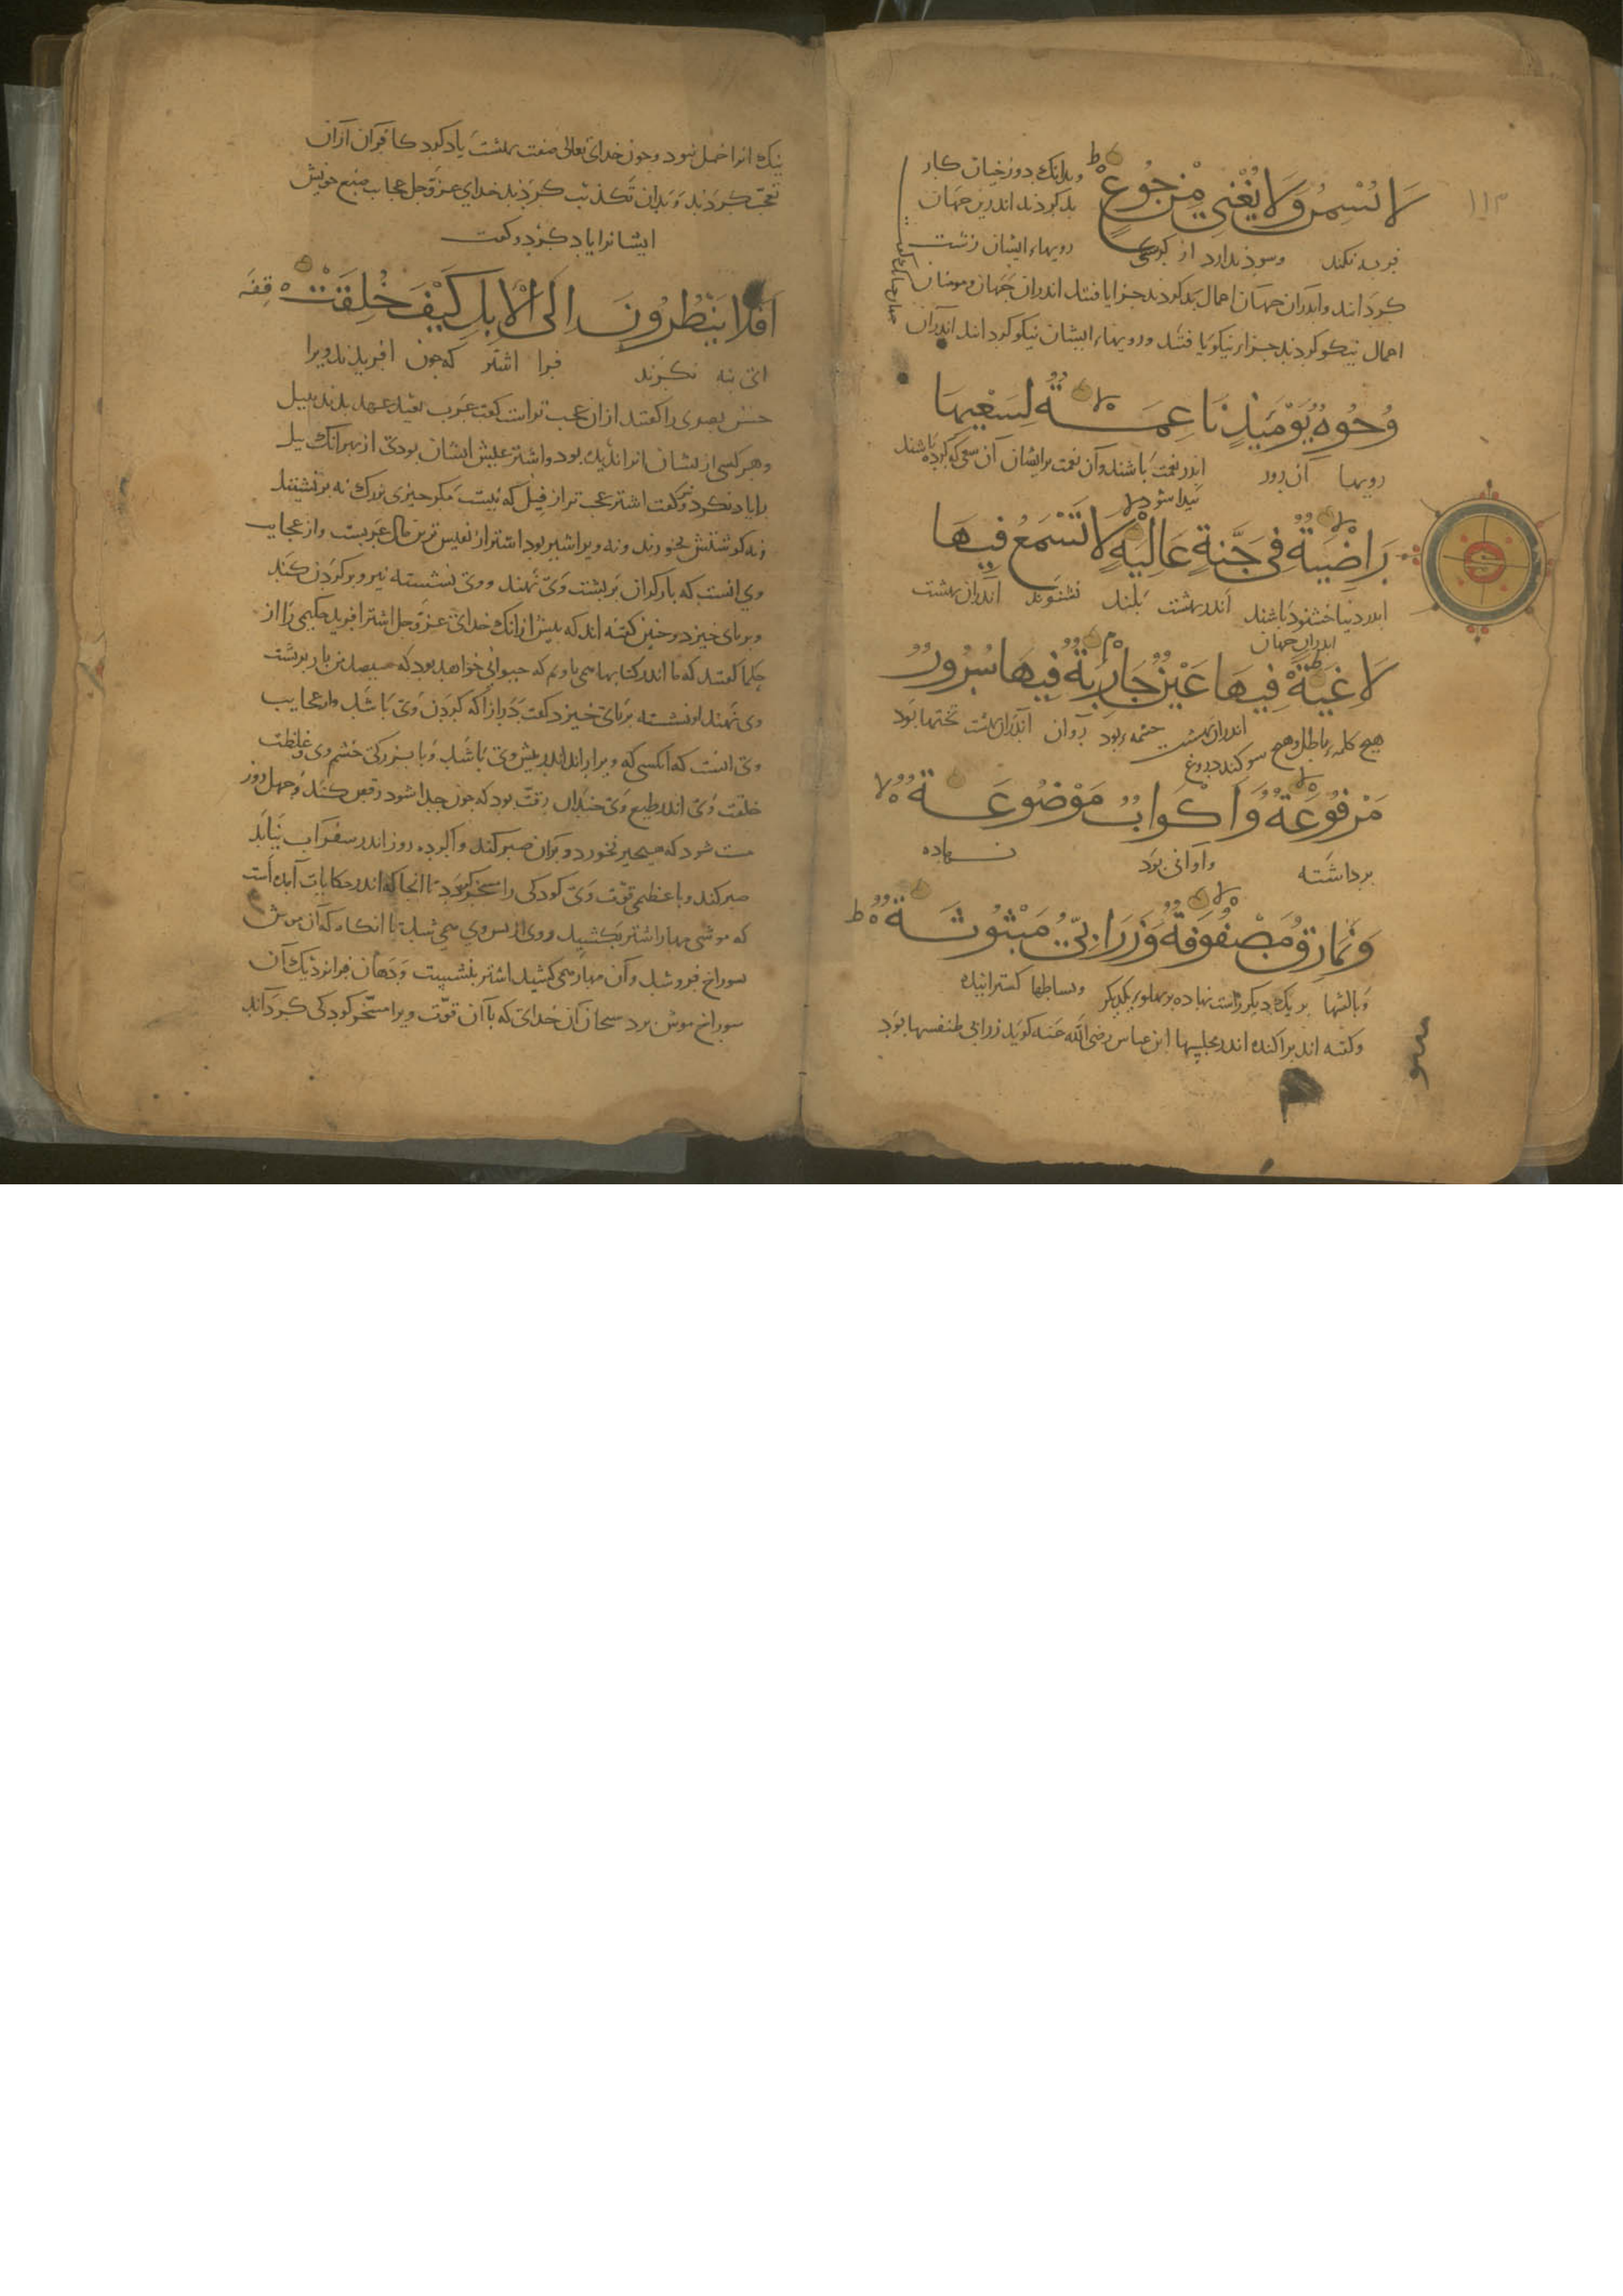 ١١٣
لَا يُسْمِنُ وَلَا يُغْنِي مِنْ جُوعٍ ط
وبدانک دوزخیان کار
بد کردند اندرین جهان
فربه نکند وسود ندارد از گرسنگی
رویهاء ایشان زشت
کردانند واندران جهان اعمال بد کردند جزا یافتند اندران جهان ومومنان
اعمال نیکو کردند جزاء نیکو یافتند ورویهاء ایشان نیکو کردانند اندران
وُجُوهٌ يَوْمَئِذٍ نَاعِمَةٌ لا لِسَعْيِهَا
رویها آن روز اندر نعمت باشند وآن نعمت برایشان آن سعی که کرده باشند
پیدا شود
رَاضِيَةٌ لا فِي جَنَّةٍ عَالِيَةٍ لا لَا تَسْمَعُ فِيهَا
اندر دنیا خشنود باشند اندر بهشت بلند نشنوند اندران بهشت
اندران جهان
لَاغِيَةً ط فِيهَا عَيْنٌ جَارِيَةٌ م فِيهَا سُرُرٌ
هیچ کلمه باطل وهیچ سوکند دروغ اندران بهشت چشمه بود روان اندران بهشت تختها بود
مَرْفُوعَةٌ لا وَأَكْوَابٌ مَوْضُوعَةٌ لا
برداشته واوانی بود نهاده
وَنَمَارِقُ مَصْفُوفَةٌ لا وَزَرَابِيُّ مَبْثُوثَةٌ ط
وبالشها بر یک دیکر راست نهاده بر پهلوء یکدیکر وبساطها کسترانیده
وکفته اند براکنده اندر مجلسها ابن عباس رضی الله عنه کوید زرابی طنفسها بود
نیک انرا خمل بود وچون خدای تعالی صفت بهشت یاد کرد کافران ازان
تعجب کردند وبدان تکذیب کردند خدای عزوجل عجایب صنع خویش
ایشانرا یاد کرد وکفت
أَفَلَا يَنْظُرُونَ إِلَى الْإِبِلِ كَيْفَ خُلِقَتْ قفه
انی نه نکرند فرا اشتر که چون افریدند ویرا
حسن بصری را کفتند ازان عجب تر است کفت عرب بعید عهد بدند بپیل
وهر کسی از ایشان انرا نادیده بود واشتر عیش ایشان بودی از بهر انک پیل
را یاد نکرد وکفت اشتر عجب تر از فیل که نیست مکر چیزی بزرک نه برنشینند
ونه کوشتش بخورند ونه ویرا شیر بود اشتر از نفیس ترین مال عربست واز عجایب
وی انست که بار کران بر پشت وی نهند ووی نشسته نیرو بر کردن کند
وبر پای خیزد وچنین کفته اند که پیش ازانک خدای عزوجل اشتر افرید حکیمی را از
حکما کفتند که ما اندر کتابها همی یاویم که حیوانی خواهد بود که سیصد من بار بر پشت
وی نهند او نشسته بر پای خیزد کفت دراز اکه کردن وی باشد واز عجایب
وی انست که انکسی که ویرا براند اندر پیش وی باشد وبا بزرکی خشم وی وغلظت
خلقت وی اندر طبع وی چندان رقت بود که چون حدا شود رقص کند وچهل روز
مست شود که هیچیز نخورد وبران صبر کند واکر ده روز اندر سفر آب نیابد
صبر کند وبا عظیمی قوت وی کودکی را مسخر کردد تا انجا که اندر حکایات آمده است
که موشی مهار اشتر بکشید ووی از پس وی همی شد تا انکاه که آن موش
سوراخ فرو شد وآن مهار همی کشید اشتر بنشست ودهان فرا نزدیک آن
سوراخ موش برد سبحان آن خدای که با آن قوت ویرا مسخر کودکی کردآند